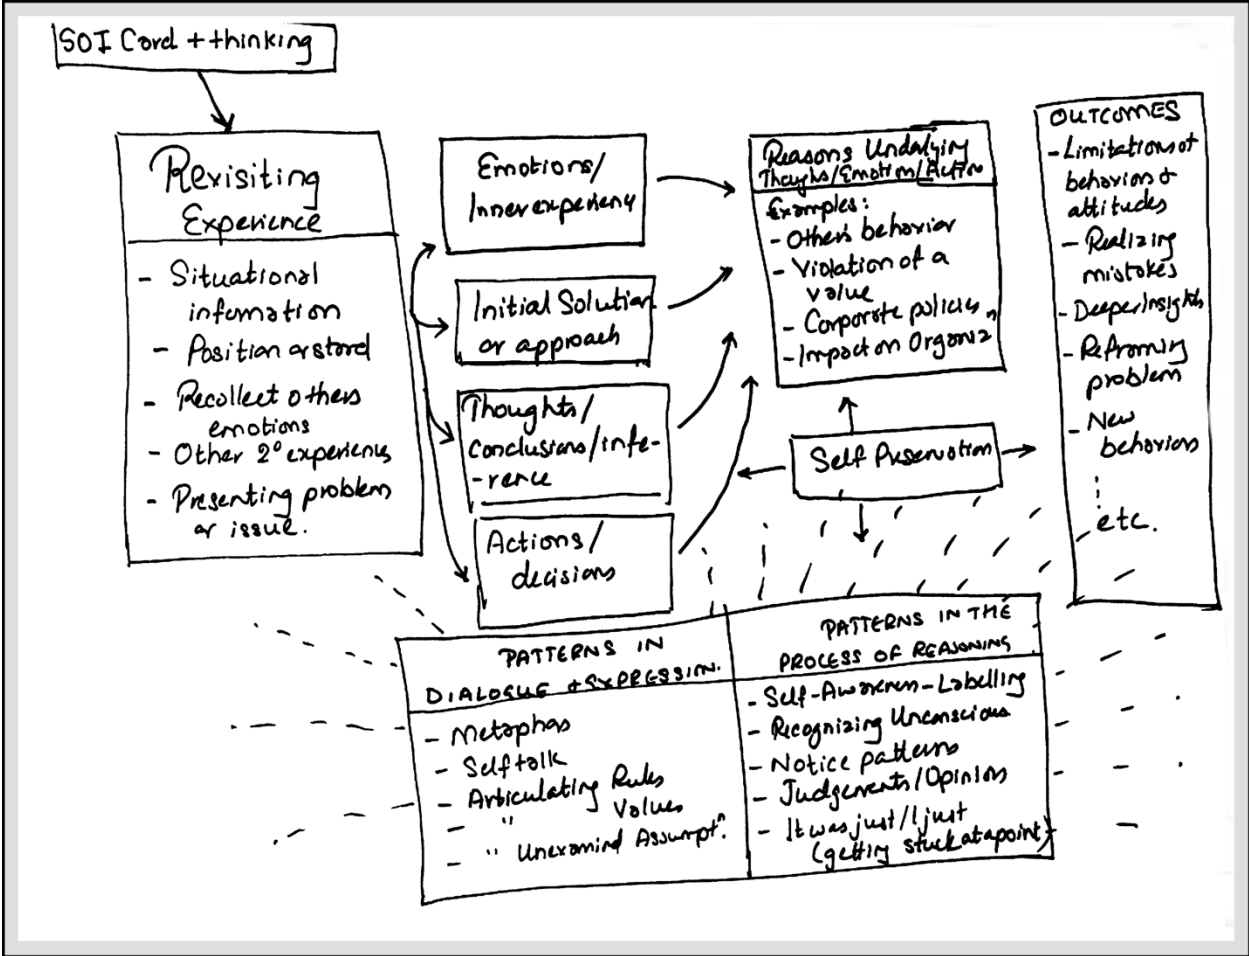 SOI Card + thinking
Revisiting
Experience
- Situational
information
- Position or stand
- Recollect others
emotions
- Other 2° experiences
- Presenting problem
or issue.
Emotions/
Inner experience
Initial Solution
or approach
Thoughts/
conclusions/infe-
-rence
Actions/
decisions
Reasons Underlying
Thoughs/Emotion/Action
Examples:
- Others behavior
- Violation of a
value
- Corporate policies
- Impact on Organizn
Self Preservation
OUTCOMES
- Limitations of
behaviors &
attitudes
- Realizing
mistakes
- Deeper Insights
- Reframing
problem
- New
behaviors
etc.
PATTERNS IN
DIALOGUE + EXPRESSION.
- Metaphors
- Self talk
- Articulating Rules
- " Values
- " Unexamind Assumptn.
PATTERNS IN THE
PROCESS OF REASONING
- Self-Awareness-Labelling
- Recognizing Unconscious
- Notice patterns
- Judgements/Opinions
- It was just/I just
(getting stuck at a point)